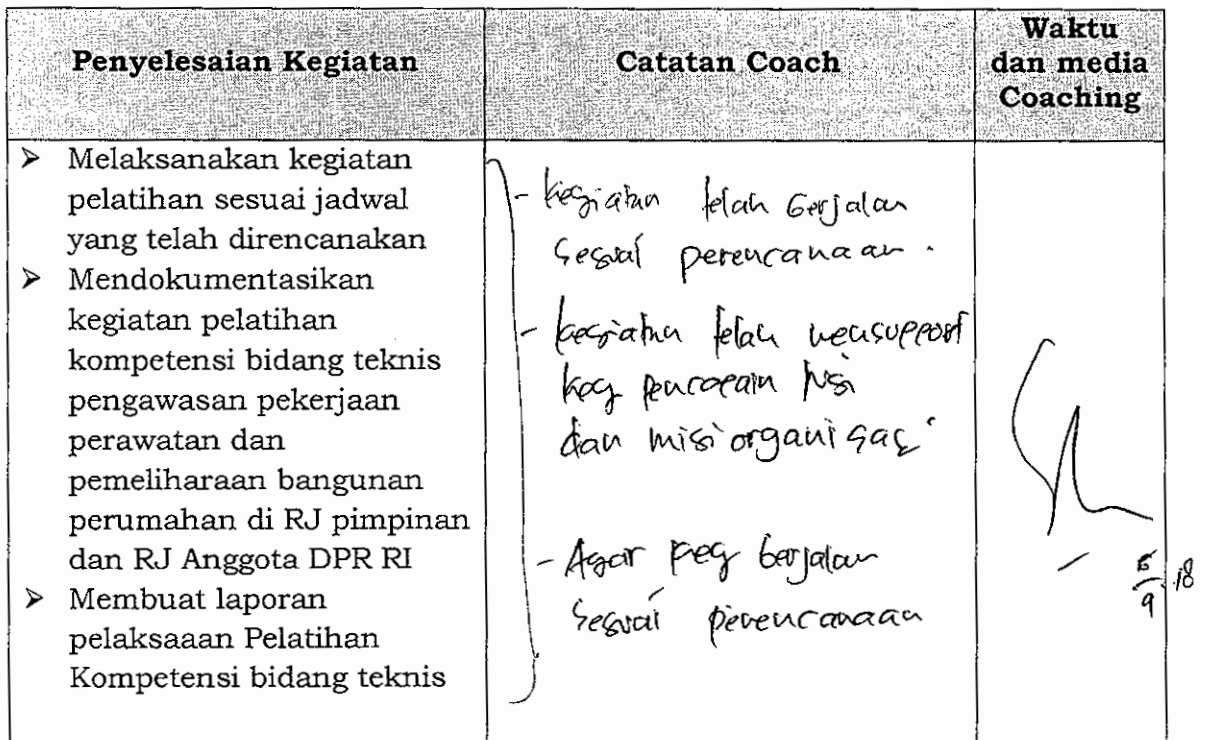 Penyelesaian Kegiatan
Catatan Coach
Waktu
dan media
Coaching
➢ Melaksanakan kegiatan
pelatihan sesuai jadwal
yang telah direncanakan
➢ Mendokumentasikan
kegiatan pelatihan
kompetensi bidang teknis
pengawasan pekerjaan
perawatan dan
pemeliharaan bangunan
perumahan di RJ pimpinan
dan RJ Anggota DPR RI
➢ Membuat laporan
pelaksaaan Pelatihan
Kompetensi bidang teknis
- kegiatan telah berjalan
sesuai perencanaan.
- kegiatan telah mensupport
keg pencapain visi
dan misi organisasi
- Agar keg berjalan
sesuai perencanaan
9 18